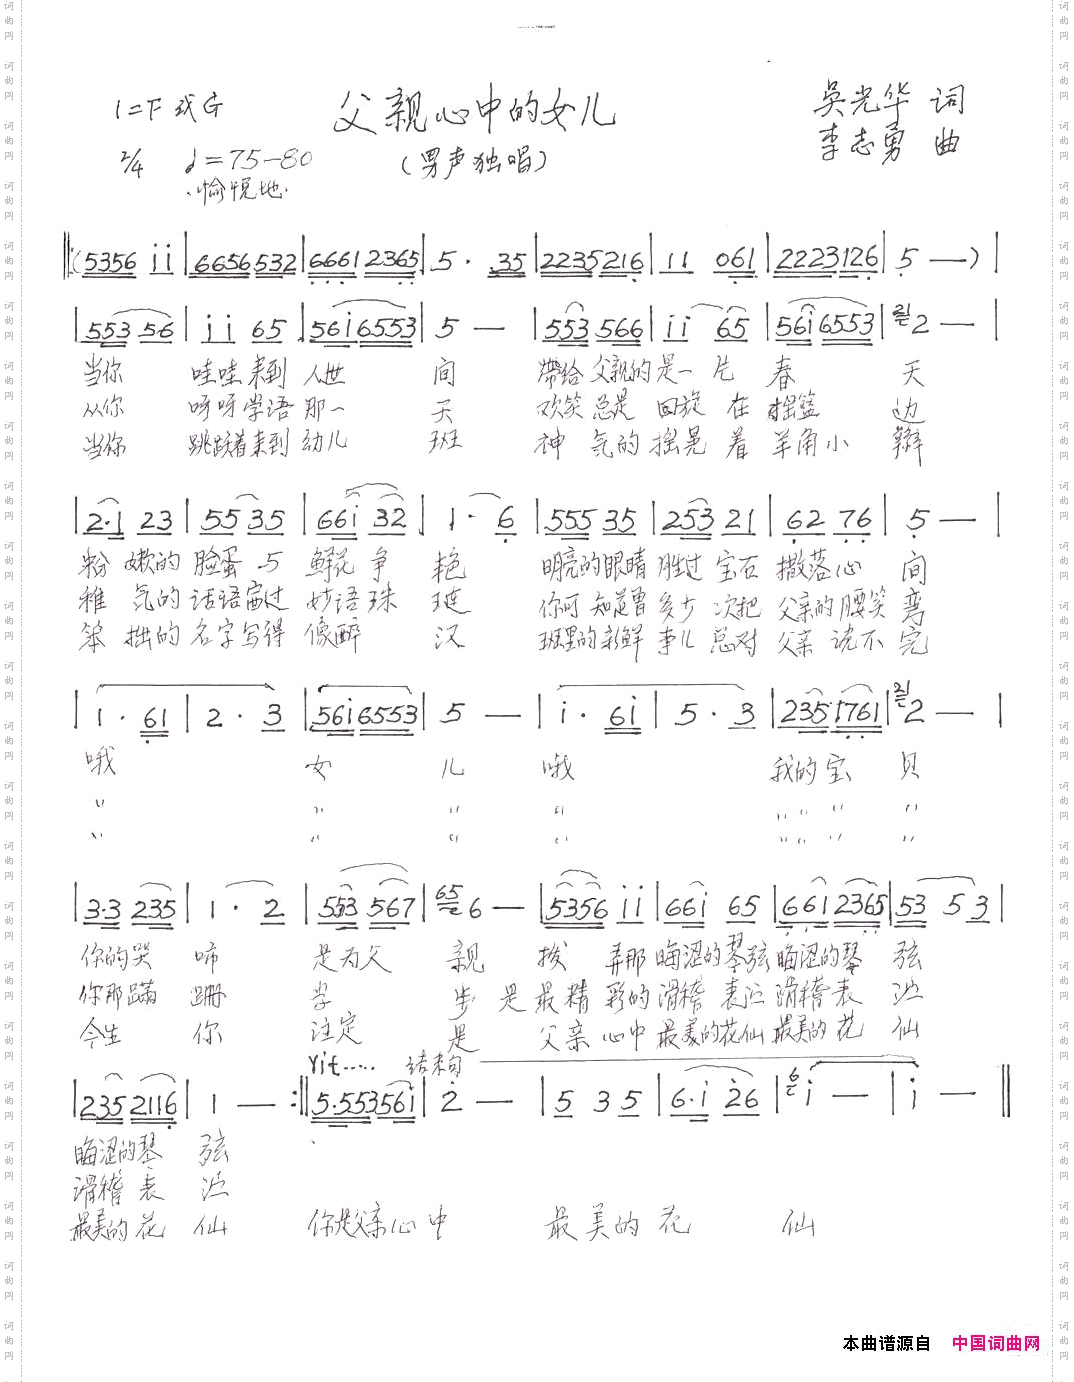 父親心中的女儿
1=F或G
吳光华 词
2/4 ♩=75-80
(男声独唱)
李志勇 曲
愉悦地
5356 i i | 6656 532 | 6661 2365 | 5 · 35 | 2235 216 | 1 1 061 | 2223 126 | 5 — )
553 56 | i i 65 | 56i 6553 | 5 — | 553 566 | i i 65 | 56i 6553 | 2 —
当你 哇哇来到 人世 间 带给父親的是一片 春 天
从你 呀呀学语 那一 天 欢笑总是 回旋 在 摇篮 边
当你 跳跃着来到 幼儿 班 神气的摇晃 着 羊角小 辫
2·1 23 | 55 35 | 66i 32 | 1 · 6 | 555 35 | 253 21 | 62 76 | 5 —
粉嫩的 脸蛋与 鲜花争 艳 明亮的眼睛 胜过 宝石 撒落心 间
稚气的 话语富过 妙语珠 琏 你可知道曾 多少 次把 父亲的腰笑 弯
笨拙的 名字写得 像醉 汉 班里的新鲜 事儿 总对 父亲 说不 完
1 · 61 | 2 · 3 | 56i 6553 | 5 — | i · 6i | 5 · 3 | 235 1761 | 2 —
哦 女 儿 哦 我的宝 贝
〃 〃 〃 〃 〃 〃 〃 〃
〃 〃 〃 〃 〃 〃 〃 〃
3·3 235 | 1 · 2 | 553 567 | 6 — | 5356 i i | 66i 65 | 661 2365 | 53 5 3
你的哭 啼 是为父 親 拨 弄那 晦涩的琴弦 晦涩的琴 弦
你那蹒 跚 学 步 是最精 彩的 滑稽表演 滑稽表 演
今生 你 注定 是 父亲 心中 最美的花仙 最美的花 仙
结束句
235 2116 | 1 — :‖ 5·553 56i | 2 — | 5 3 5 | 6·i 26 | i — | i — ‖
晦涩的琴 弦
滑稽表 演
最美的花 仙 你是父亲心中 最美的花 仙
本曲谱源自 中国词曲网